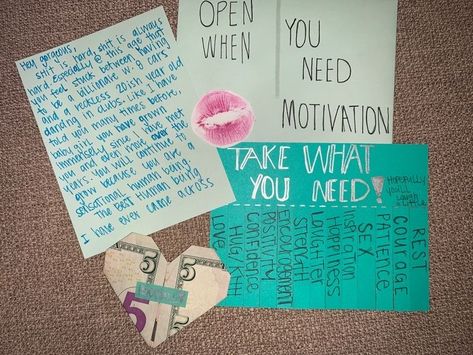 Hey gorgeous,
shit is hard, shit is always
hard especially @ this age that
you feel stuck between having
to be a billionare w/ 8 cars
and a reckless 20ish year old
dancing in clubs. Like I have
told you many times before,
baby girl you have grown
immensely since I have met
you and even more over the
years. You will continue to
grow because you are a
sensational human being.
The best human being
I have ever came across
OPEN
WHEN
YOU
NEED
MOTIVATION
TAKE WHAT
YOU NEED!
Hopefully
you'll
little
Love
HUG/KISS
Confidence
POSITIVITY
ENCOURAGEMENT
Strength
Laughter
Happiness
Inspiration
SEX
PATIENCE
COURAGE
REST
5
5